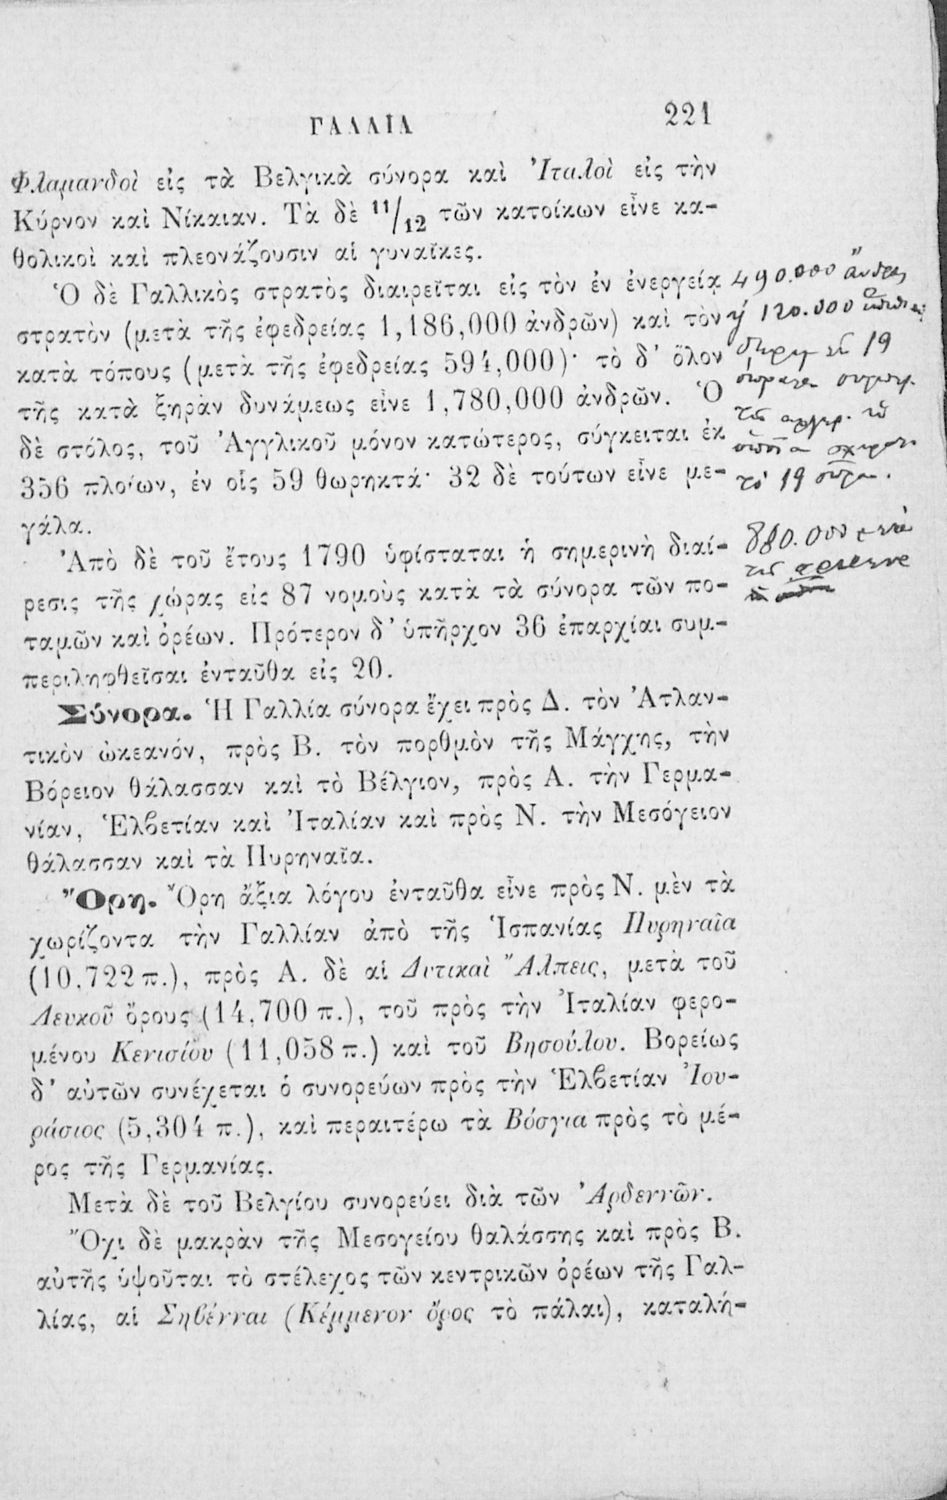 ΓΑΛΛΙΑ 221
Φλαμανδοὶ εἰς τὰ Βελγικὰ σύνορα καὶ Ἰταλοὶ εἰς τὴν
Κύρνον καὶ Νίκαιαν. Τὰ δὲ 11/12 τῶν κατοίκων εἶνε κα-
θολικοὶ καὶ πλεονάζουσιν αἱ γυναῖκες.
Ὁ δὲ Γαλλικὸς στρατὸς διαιρεῖται εἰς τὸν ἐν ἐνεργείᾳ
στρατὸν (μετὰ τῆς ἐφεδρείας 1,186,000 ἀνδρῶν) καὶ τὸν
κατὰ τόπους (μετὰ τῆς ἐφεδρείας 594,000)· τὸ δ' ὅλον
τῆς κατὰ ξηρὰν δυνάμεως εἶνε 1,780,000 ἀνδρῶν. Ὁ
δὲ στόλος, τοῦ Ἀγγλικοῦ μόνον κατώτερος, σύγκειται ἐκ
356 πλοίων, ἐν οἷς 59 θωρηκτά· 32 δὲ τούτων εἶνε με-
γάλα.
Ἀπὸ δὲ τοῦ ἔτους 1790 ὑφίσταται ἡ σημερινὴ διαί-
ρεσις τῆς χώρας εἰς 87 νομοὺς κατὰ τὰ σύνορα τῶν πο-
ταμῶν καὶ ὀρέων. Πρότερον δ' ὑπῆρχον 36 ἐπαρχίαι συμ-
περιληφθεῖσαι ἐνταῦθα εἰς 20.
Σύνορα. Ἡ Γαλλία σύνορα ἔχει πρὸς Δ. τὸν Ἀτλαν-
τικὸν ὠκεανόν, πρὸς Β. τὸν πορθμὸν τῆς Μάγχης, τὴν
Βόρειον θάλασσαν καὶ τὸ Βέλγιον, πρὸς Α. τὴν Γερμα-
νίαν, Ἑλβετίαν καὶ Ἰταλίαν καὶ πρὸς Ν. τὴν Μεσόγειον
θάλασσαν καὶ τὰ Πυρηναῖα.
Ὄρη. Ὄρη ἄξια λόγου ἐνταῦθα εἶνε πρὸς Ν. μὲν τὰ
χωρίζοντα τὴν Γαλλίαν ἀπὸ τῆς Ἱσπανίας Πυρηναῖα
(10,722 π.), πρὸς Α. δὲ αἱ Δυτικαὶ Ἄλπεις, μετὰ τοῦ
Λευκοῦ ὄρους (14,700 π.), τοῦ πρὸς τὴν Ἰταλίαν φερο-
μένου Κενισίου (11,058 π.) καὶ τοῦ Βησούλου. Βορείως
δ' αὐτῶν συνέχεται ὁ συνορεύων πρὸς τὴν Ἑλβετίαν Ἰου-
ράσιος (5,304 π.), καὶ περαιτέρω τὰ Βόσγια πρὸς τὸ μέ-
ρος τῆς Γερμανίας.
Μετὰ δὲ τοῦ Βελγίου συνορεύει διὰ τῶν Ἀρδεννῶν.
Ὄχι δὲ μακρὰν τῆς Μεσογείου θαλάσσης καὶ πρὸς Β.
αὐτῆς ὑψοῦται τὸ στέλεχος τῶν κεντρικῶν ὀρέων τῆς Γαλ-
λίας, αἱ Σηβένναι (Κέμμενον ὄρος τὸ πάλαι), καταλή-
490.000 ἄνδρες
120.000
19
τὰ 19
880.000